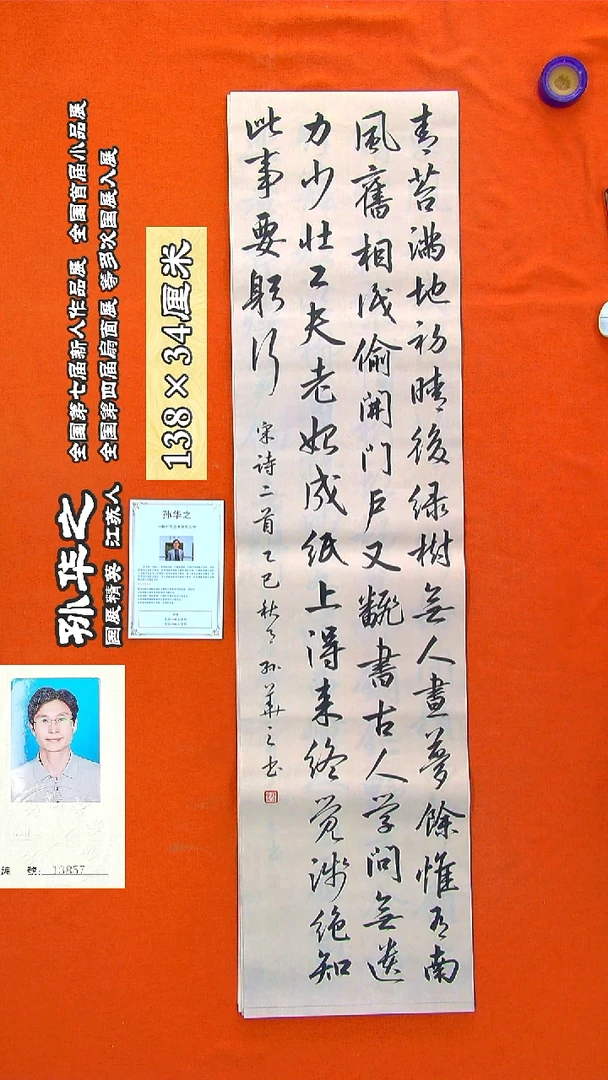 青苔满地初晴後绿樹無人晝夢餘惟有南
風舊相识偷開門戶又翻書古人学問無遗
力少壮工夫老始成纸上得来终觉浅绝知
此事要躬行
宋诗二首乙巳秋月孙華之书
138×34厘米
全国第七届新人作品展 全国首届小品展
全国第四届扇面展 等多次国展入展
孙华之
国展精英 江苏人
孙华之
号: 13857